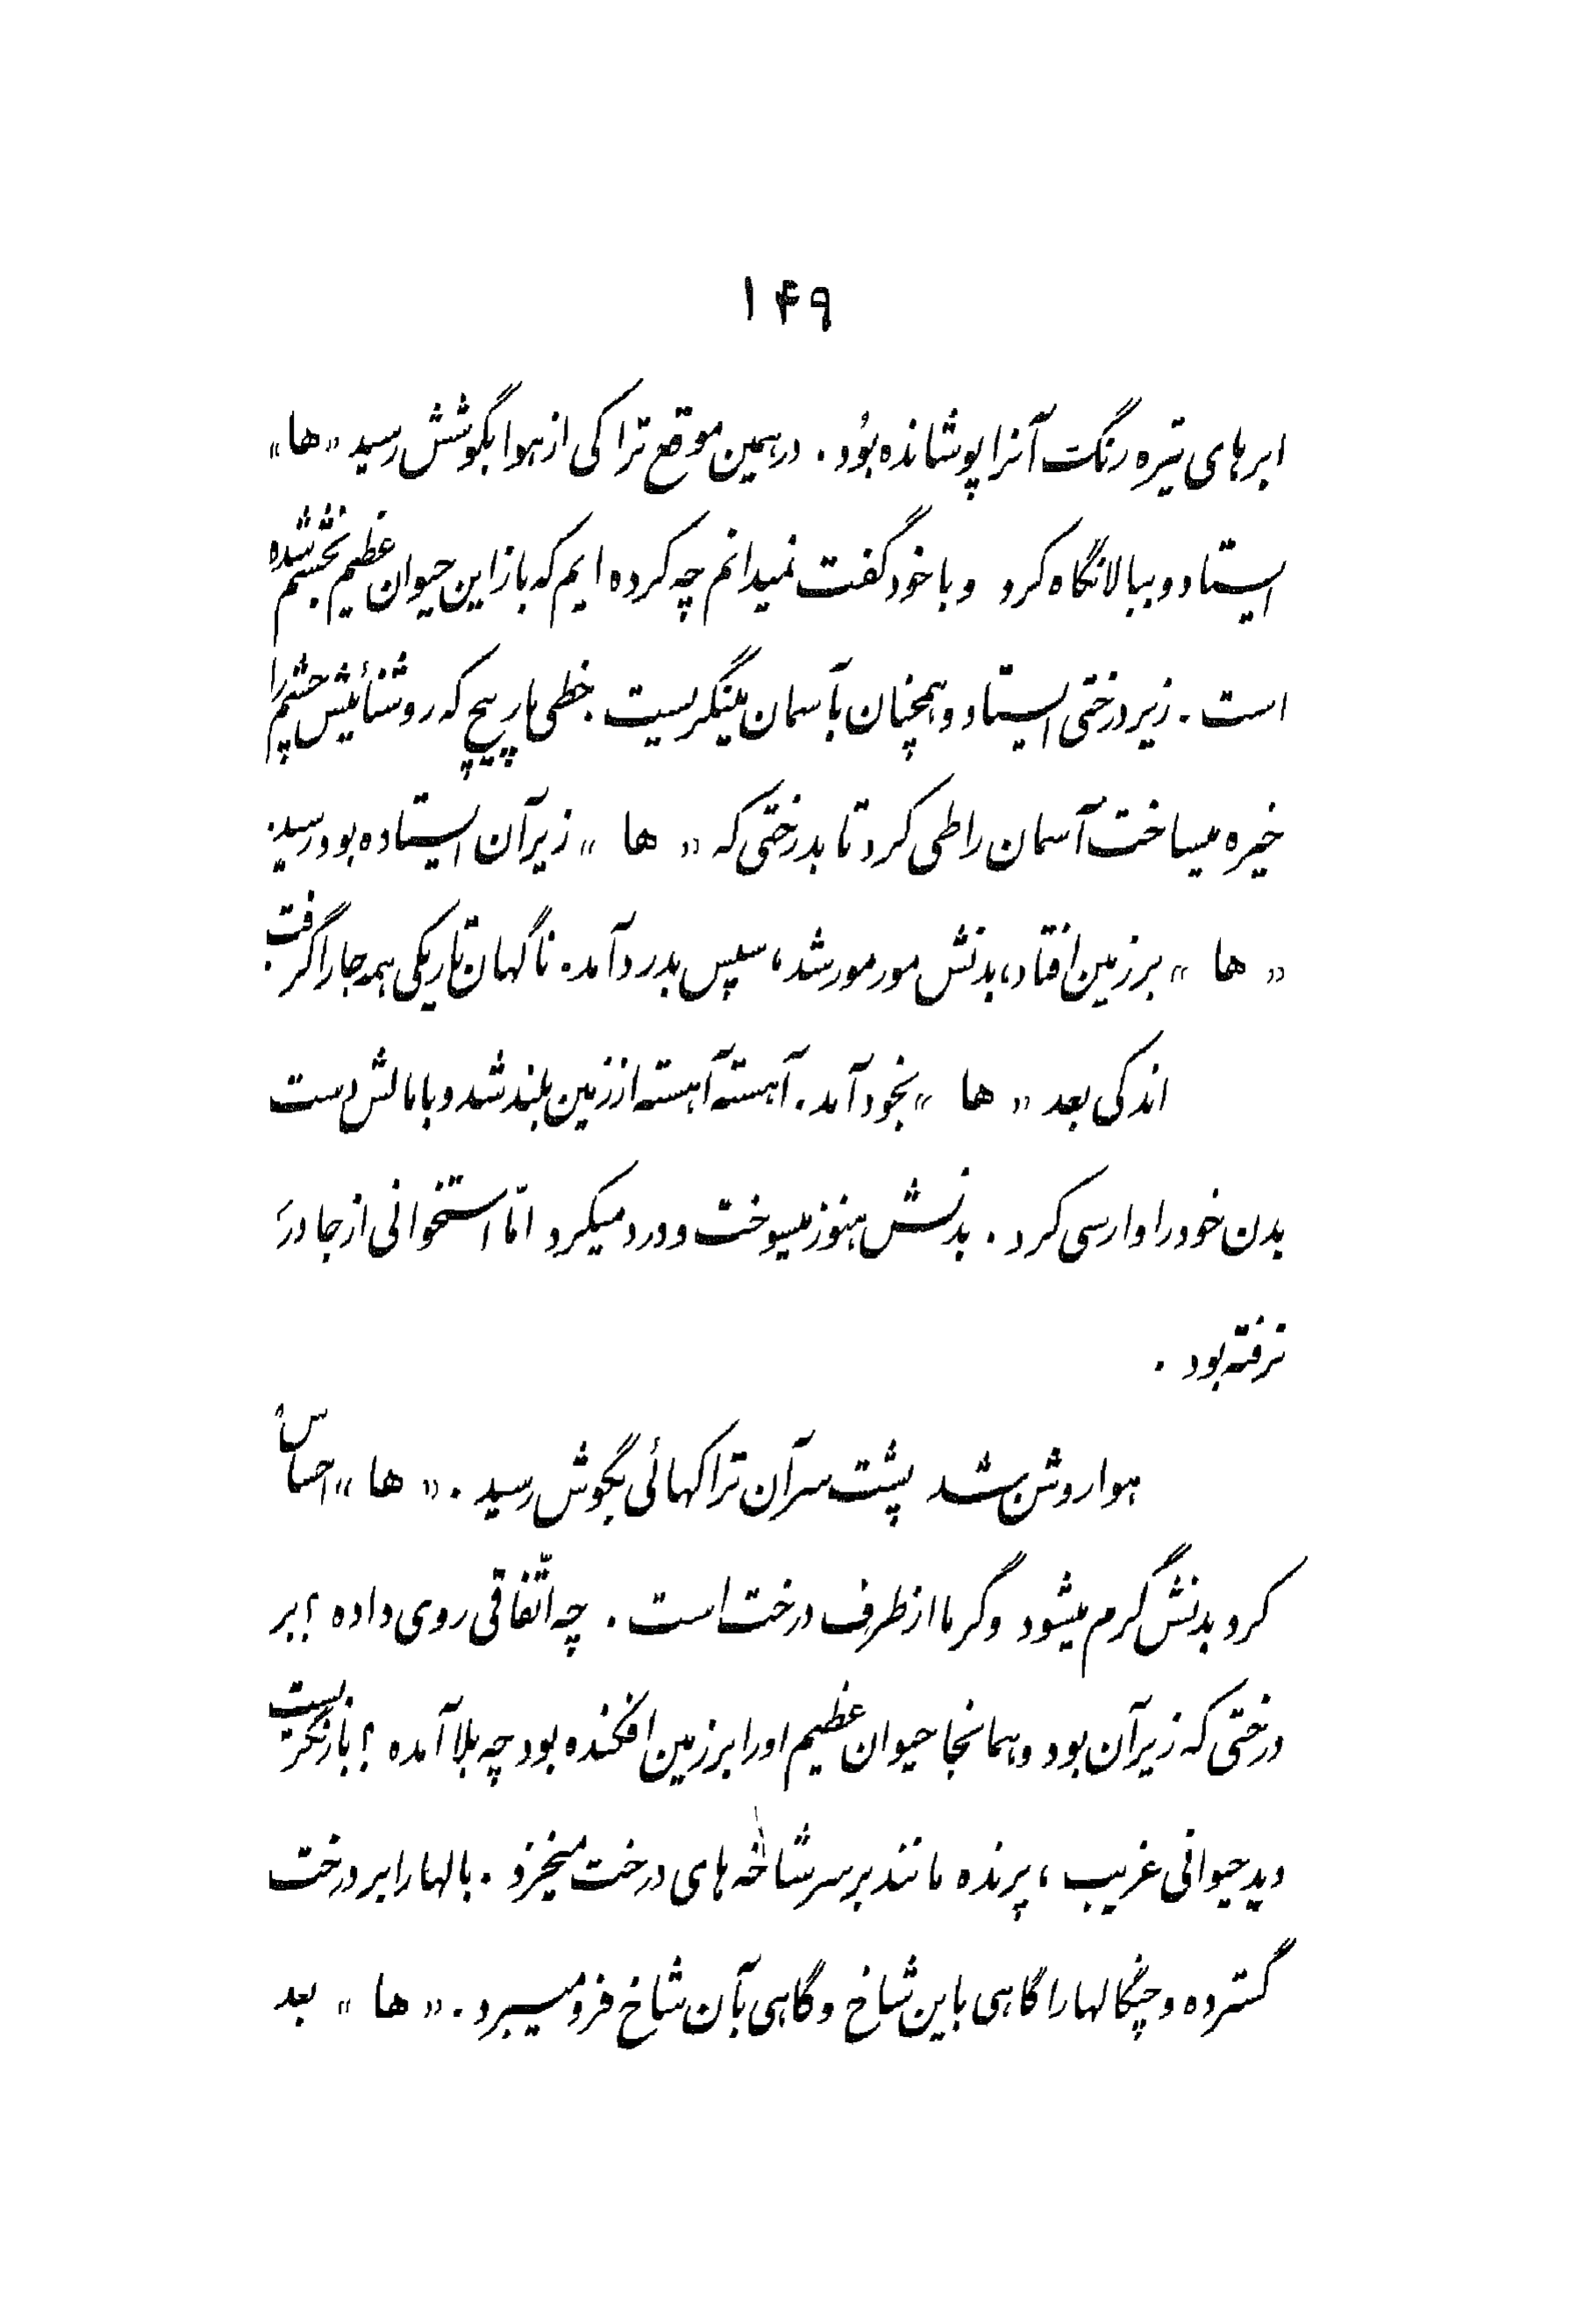 ۱۴۹
ابرهای تیره رنگ آنرا پوشانده بود. در همین موقع تراکی از هوا بگوشش رسید «ها»
ایستاد و ببالا نگاه کرد و با خود گفت نمیدانم چه کرده ایم که باز این حیوان عظیم بخشم شده
است. زیر درختی ایستاد و همچنان بآسمان مینگریست. خطی مارپیچ که روشنائیش چشم را
خیره میساخت آسمان را طی کرد تا بدرختی که «ها» زیر آن ایستاده بود رسید.
«ها» بر زمین افتاد، بدنش مورمور شد، سپس بدرد آمد. ناگهان تاریکی همه جا را گرفت.
اندکی بعد «ها» بخود آمد. آهسته آهسته از زمین بلند شد و با مالش دست
بدن خود را وارسی کرد. بدنش هنوز میسوخت و درد میکرد امّا استخوانی از جا در
نرفته بود.
هوا روشن شد پشت سر آن تراکهائی بگوش رسید. «ها» احساس
کرد بدنش گرم میشود و گرما از طرف درخت است. چه اتّفاقی روی داده؟ بر
درختی که زیر آن بود و همانجا حیوان عظیم او را بر زمین افکنده بود چه بلا آمده؟ باز نگریست
دید حیوانی غریب، پرنده مانند بر سر شاخه های درخت میخزد. بالها را بر درخت
گسترده و چنگالها را گاهی باین شاخ و گاهی بآن شاخ فرو میبرد. «ها» بعد